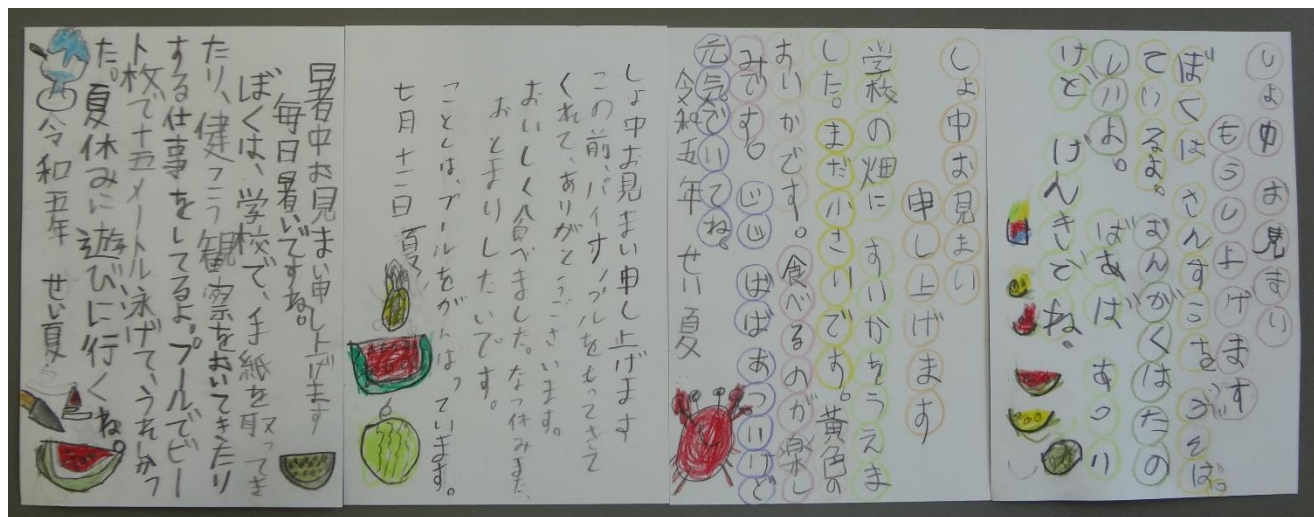 しょ中 お見まい
もうしよげます
ぼくは さんすうを
ているよ。 おんがくはたの
しいよ。 ばあば あつい
けど げんきでね。
しょ中お見まい
申し上げます
学校の畑に すいかをうえま
した。まだ小さいです。黄色の
すいかです。食べるのが楽し
みです。じじ ばばあついけど
元気でいてね。
令和五年 せい夏
しょ中お見まい申し上げます
この前、パイナップルをもってきて
くれて、ありがとうございます。
おいしく食べました。なつ休みまた、
おとまりしたいです。
ことしは、プールをがんばっています。
七月十二日 夏
暑中お見まい申し上げます
毎日暑いですね。
ぼくは、学校で、手紙を取ってき
たり、健こう観察をおいてきたり
する仕事をしてるよ。プールでビー
ト板で十五メートル泳げて、うれしかっ
た。夏休みに遊びに行くね。
令和五年 せい夏